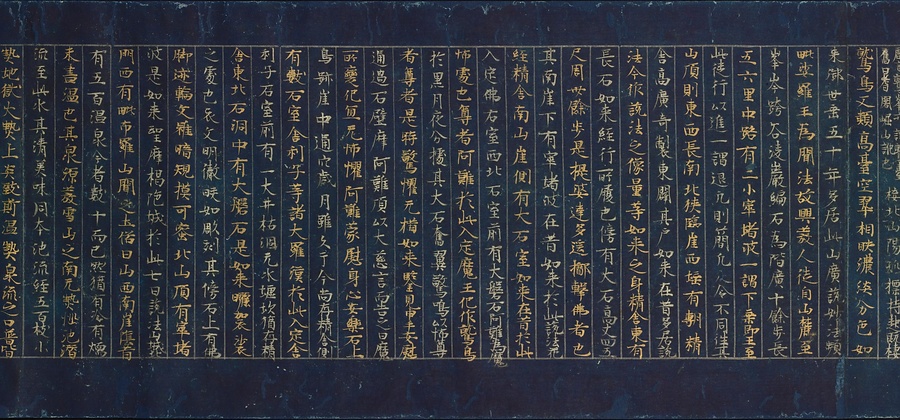 舊曰耆闍崛山訛也接北山之陽孤摽特起既棲
鷲鳥又類高臺空翠相映濃淡分色如
來御世垂五十年多居此山廣說妙法頻
毗娑羅王為聞法故興發人徒自山麓至
峯岑跨谷淩巖編石為階廣十餘步長
五六里中路有二小窣堵波一謂下乘即王至
此徒行以進一謂退凡則簡凡人不令同往其
山頂則東西長南北狹臨崖西埵有甎精
舍高廣奇製東闢其戶如來在昔多居說
法今作說法之像量等如來之身精舍東有
長石如來經行所履也傍有大石高丈四五
尺周卅餘步是提婆達多遙擲擊佛處也
其南崖下有窣堵波在昔如來於此說法花
經精舍南山崖側有大石室如來在昔於此
入定佛石室西北石室前有大磐石阿難為魔
怖處也尊者阿難於此入定魔王化作鷲鳥
於黑月夜分據其大石奮翼驚鳴以怖尊
者尊者是時驚懼无措如來鑒見申手安慰
通過石壁摩阿難頂以大慈言而告之曰魔
所變化宜无怖懼阿難蒙慰身心安樂石上
鳥跡崖中通穴歲月雖久于今尚存精舍側
有數石室舍利子等諸大羅漢於此入定舍
利子石室前有一大井枯涸无水墟坎猶存精
舍東北石㵎中有大磐石是如來曬袈裟
之處也衣文明徹皎如彫刻其傍石上有佛
脚迹輪文雖暗規模可察北山頂有窣堵
波是如來望摩揭陁城於此七日說法山城北
門西有毗布羅山聞之土俗曰山西南崖陰昔
有五百溫泉今者數十而已然猶有冷有煗
未盡溫也其泉源發雪山之南无熱惱池潛
流至此水甚清美味同本池流經五百枝小
熱地獄火熱上炎致斯溫熱泉流之口普皆